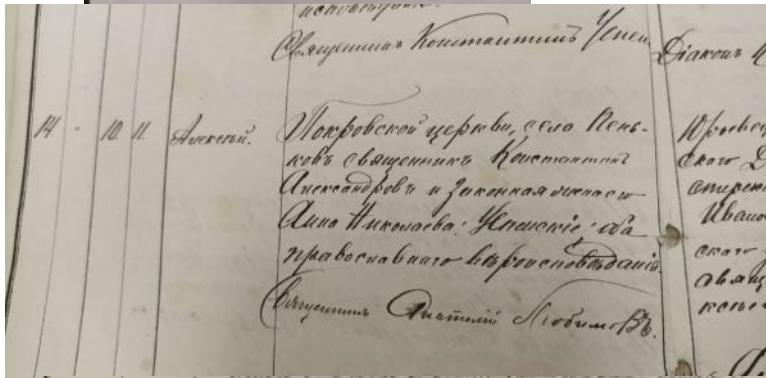 исповѣданія.
Священникъ Константинъ Успен
Діаконъ
14 - 10 11 Алексѣй.
Покровской церкви, села Пень-
ковъ священникъ Константинъ
Александровъ и законная жена его
Анна Николаева Успенскіе: оба
православнаго вѣроисповѣданія.
Священникъ Анатолій Любимовъ.
Юрьевец
скаго
Ивано
скаго